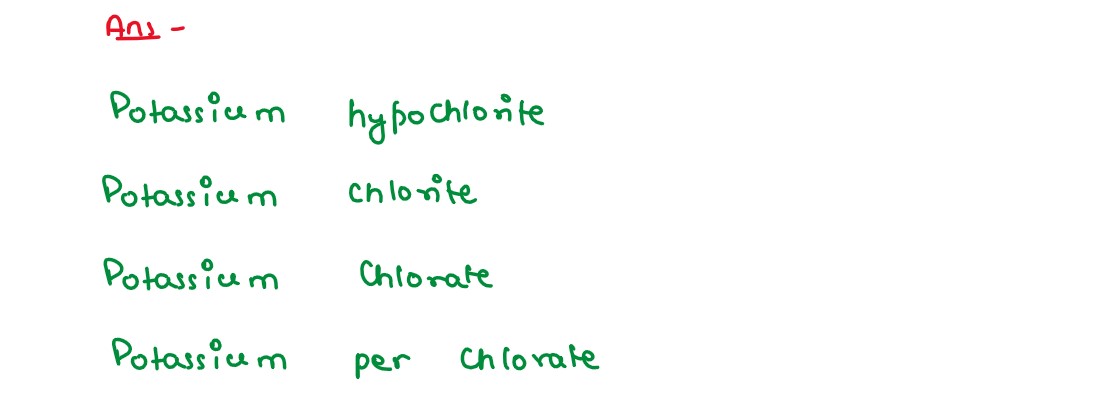 Ans -
Potassium hypochlorite
Potassium chlorite
Potassium Chlorate
Potassium per Chlorate